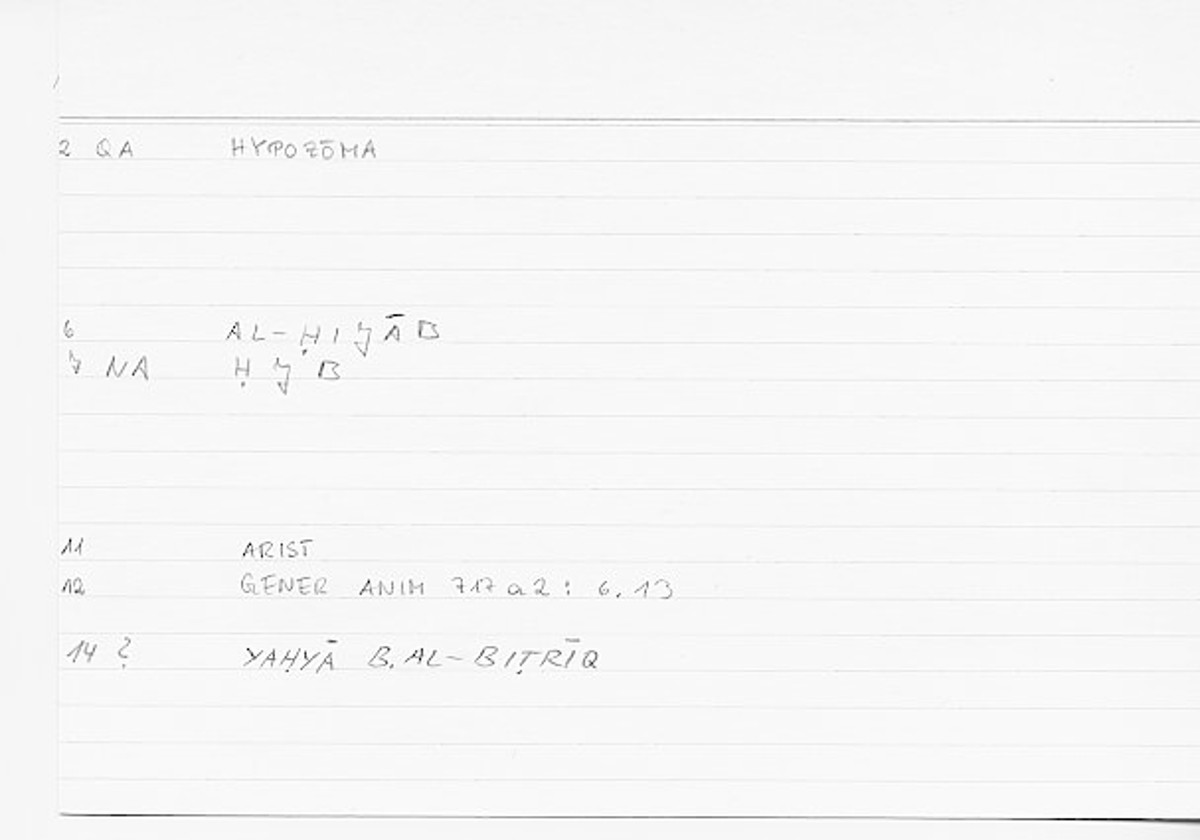 2 QA HYPOZŌMA
6 AL-ḤIJĀB
7 NA ḤJB
11 ARIST
12 GENER ANIM 717a2: 6.13
14 ? YAḤYĀ B. AL-BIṬRĪQ